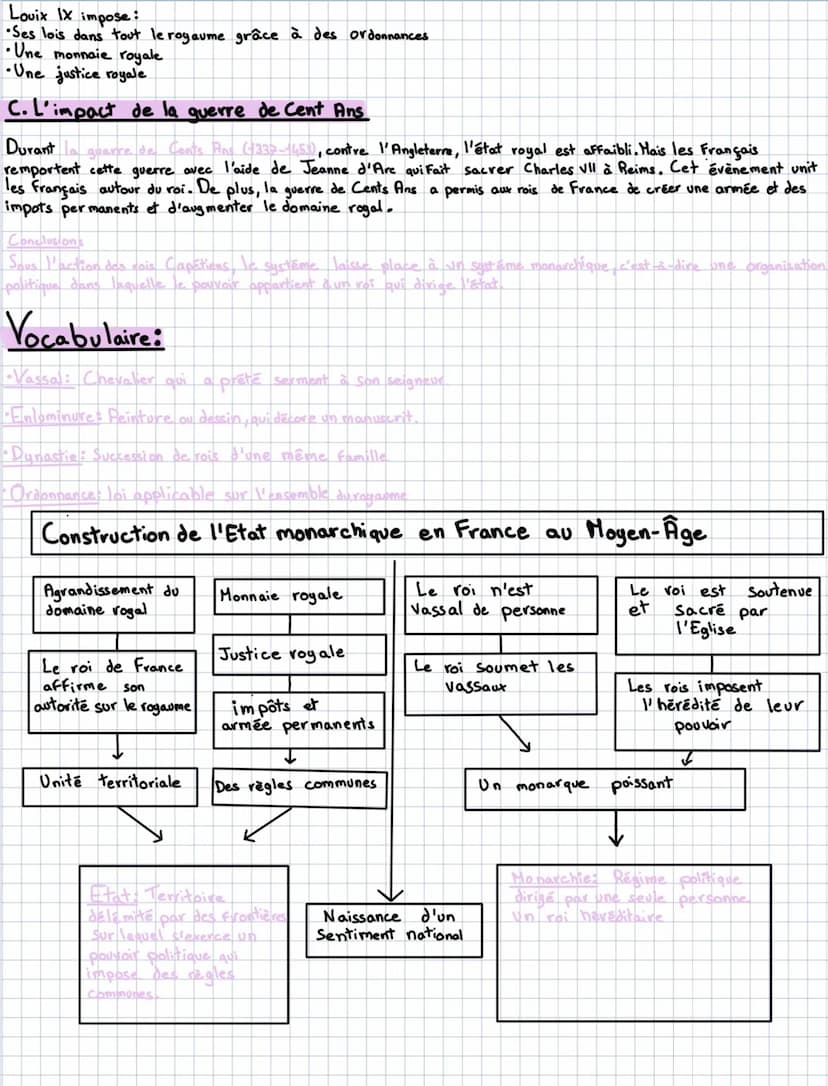 Louix IX impose:
•Ses lois dans tout le royaume grâce à des ordonnances
•Une monnaie royale
•Une justice royale
C. L'impact de la guerre de Cent Ans
Durant la guerre de Cents Ans (1337-1453), contre l'Angleterre, l'état royal est affaibli. Mais les Français
remportent cette guerre avec l'aide de Jeanne d'Arc qui fait sacrer Charles VII à Reims. Cet évènement unit
les Français autour du roi. De plus, la guerre de Cents Ans a permis aux rois de France de créer une armée et des
impots permanents et d'augmenter le domaine royal.
Conclusion:
Sous l'action des rois Capétiens, le système laisse place à un système monarchique, c'est-à-dire une organisation
politique dans laquelle le pouvoir appartient à un roi qui dirige l'état.
Vocabulaire:
•Vassal: Chevalier qui a prêté serment à son seigneur
•Enlominure: Peinture ou dessin, qui décore un manuscrit.
•Dynastie: Succession de rois d'une même famille
•Ordonnance: loi applicable sur l'ensemble du royaume
Construction de l'Etat monarchique en France au Moyen-Âge
Agrandissement du
domaine royal
Le roi de France
affirme son
autorité sur le royaume
Unité territoriale
Monnaie royale
Justice royale
impôts et
armée permanents
Des règles communes
Le roi n'est
Vassal de personne
Le roi soumet les
vassaux
Le roi est soutenue
et sacré par
l'Eglise
Les rois imposent
l'hérédité de leur
pouvoir
Un monarque poissant
Etat: Territoire
délémité par des frontières
sur lequel s'exerce un
pouvoir politique qui
impose des règles
communes.
Naissance d'un
Sentiment national
Monarchie: Régime politique
dirigé par une seule personne
un roi héréditaire